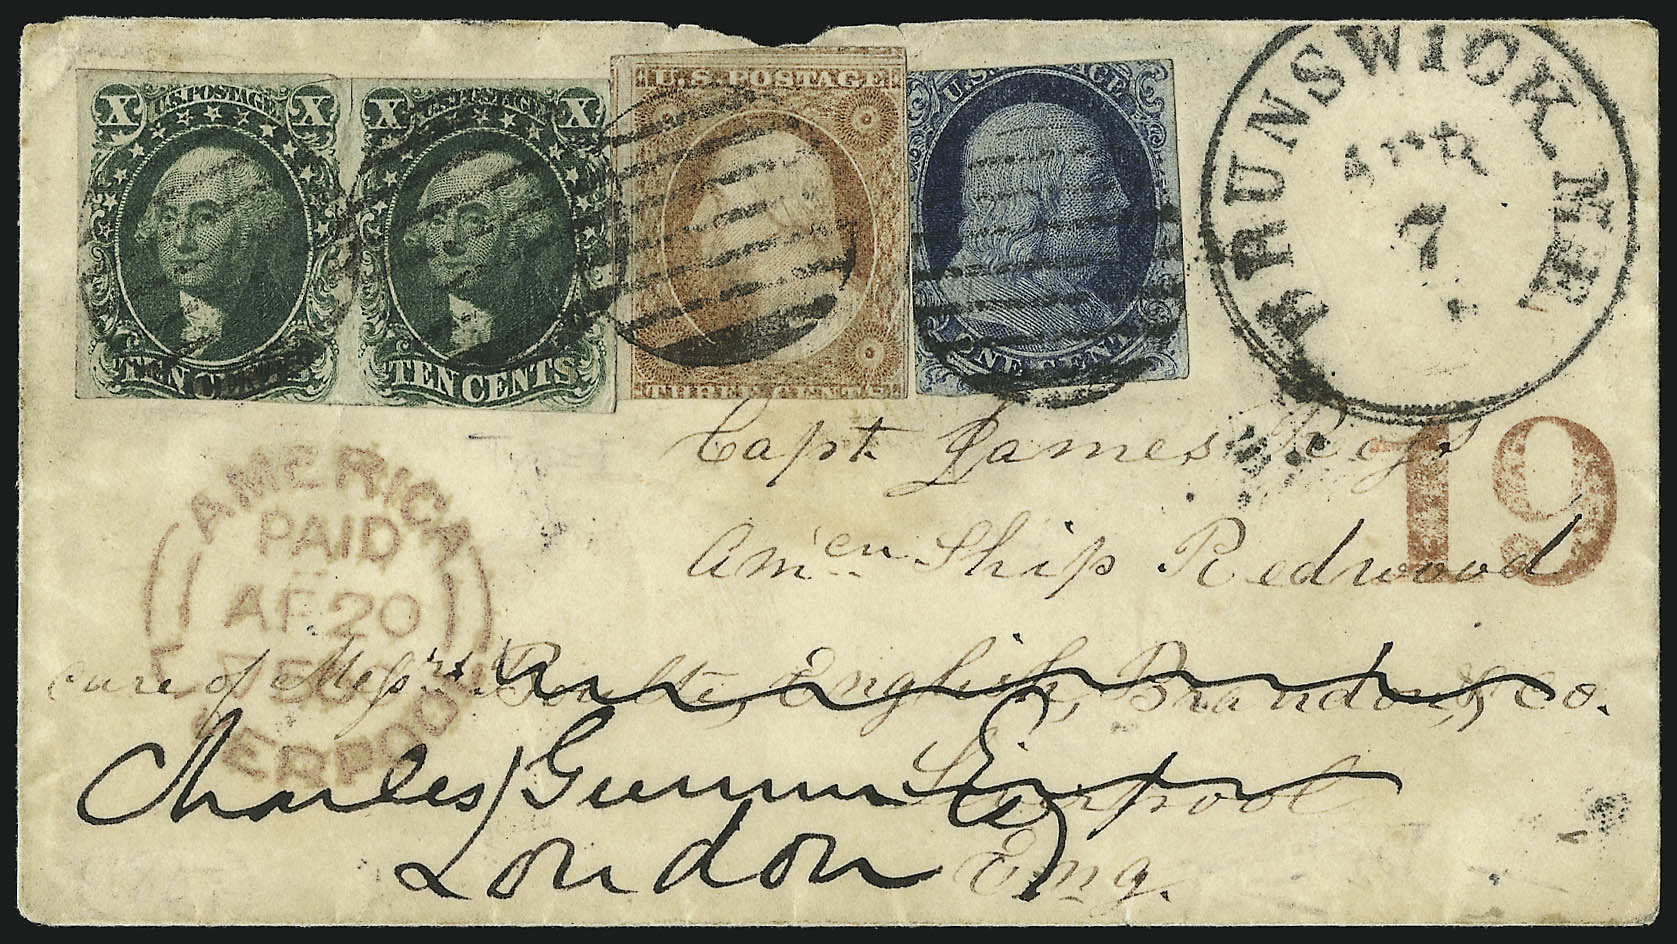 X U.S. POSTAGE X
TEN CENTS
X U.S. POSTAGE X
TEN CENTS
U.S. POSTAGE
THREE CENTS
U.S. POSTAGE
ONE CENT
BRUNSWICK ME
APR
7
19
AMERICA
PAID
AP 20
LIVERPOOL
Capt. James
Amen Ship Redwood
care of Messrs English, Brandon, & Co.
Liverpool
Eng.
Charles
London